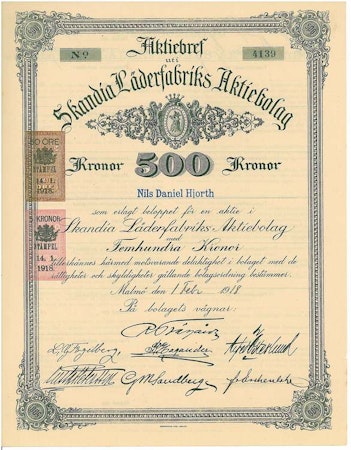 Aktiebref
uti
Nº 4139
Skandia Läderfabriks Aktiebolag
Kronor 500 Kronor
Nils Daniel Hjorth
som erlagt beloppet för en aktie i
Skandia Läderfabriks-Aktiebolag
med
Femhundra Kronor
tillerkännes härmed motsvarande delaktighet i bolaget med de
rättigheter och skyldigheter gällande bolagsordning bestämmer.
Malmö den 1 Febr 1918
På bolagets vägnar:
50 ÖRE
STÄMPEL
14. 1.
1918
5 KRONOR
STÄMPEL
14. 1.
1918.